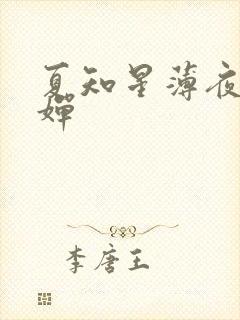 夏知星薄夜
婵
李唐王